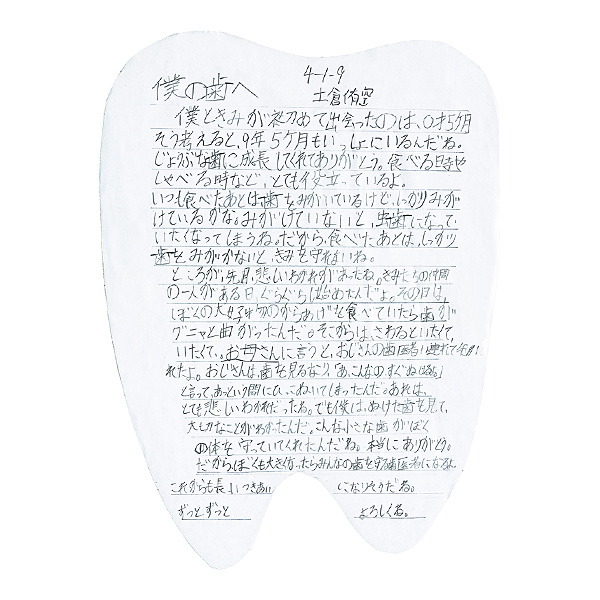 僕の歯へ
4-1-9
土倉侑空
僕ときみが初めて出会ったのは、0才5ケ月
そう考えると、9年5ケ月もいっしょにいるんだね。
じょうぶな歯に成長してくれてありがとう。食べる時や
しゃべる時など、とても役立っているよ。
いつも食べたあとは歯をみがいているけど、しっかりみが
けているかな。みがけていないと、虫歯になって、
いたくなってしまうね。だから、食べたあとは、しっかり
歯をみがかないと、きみを守れないね。
ところが、先月、悲しいわかれがあったね。きみたちの仲間
の一人がある日、ぐらぐらし始めたんだよ。その日は、
ぼくの大好物のからあげを食べていたら歯が
グニャと曲がったんだ。そこからは、さわるといたくて、
いたくて。お母さんに言うと、おじさんの歯医者に連れて行
れたよ。おじさんは、歯を見るなり、「あ、こんなのすぐぬける。」
と言って、あっという間にひっこぬいてしまったんだ。あれは、
とても悲しいわかれだったね。でも僕は、ぬけた歯を見て、
大切なことがわかったんだ。こんな小さな歯がぼく
の体を守っていてくれたんだね。本当にありがとう。
だからぼくも大きくなったらみんなの歯を守る歯医者になるよ。
これからも長いつきあい になりそうだね。
ずっとずっと よろしくね。